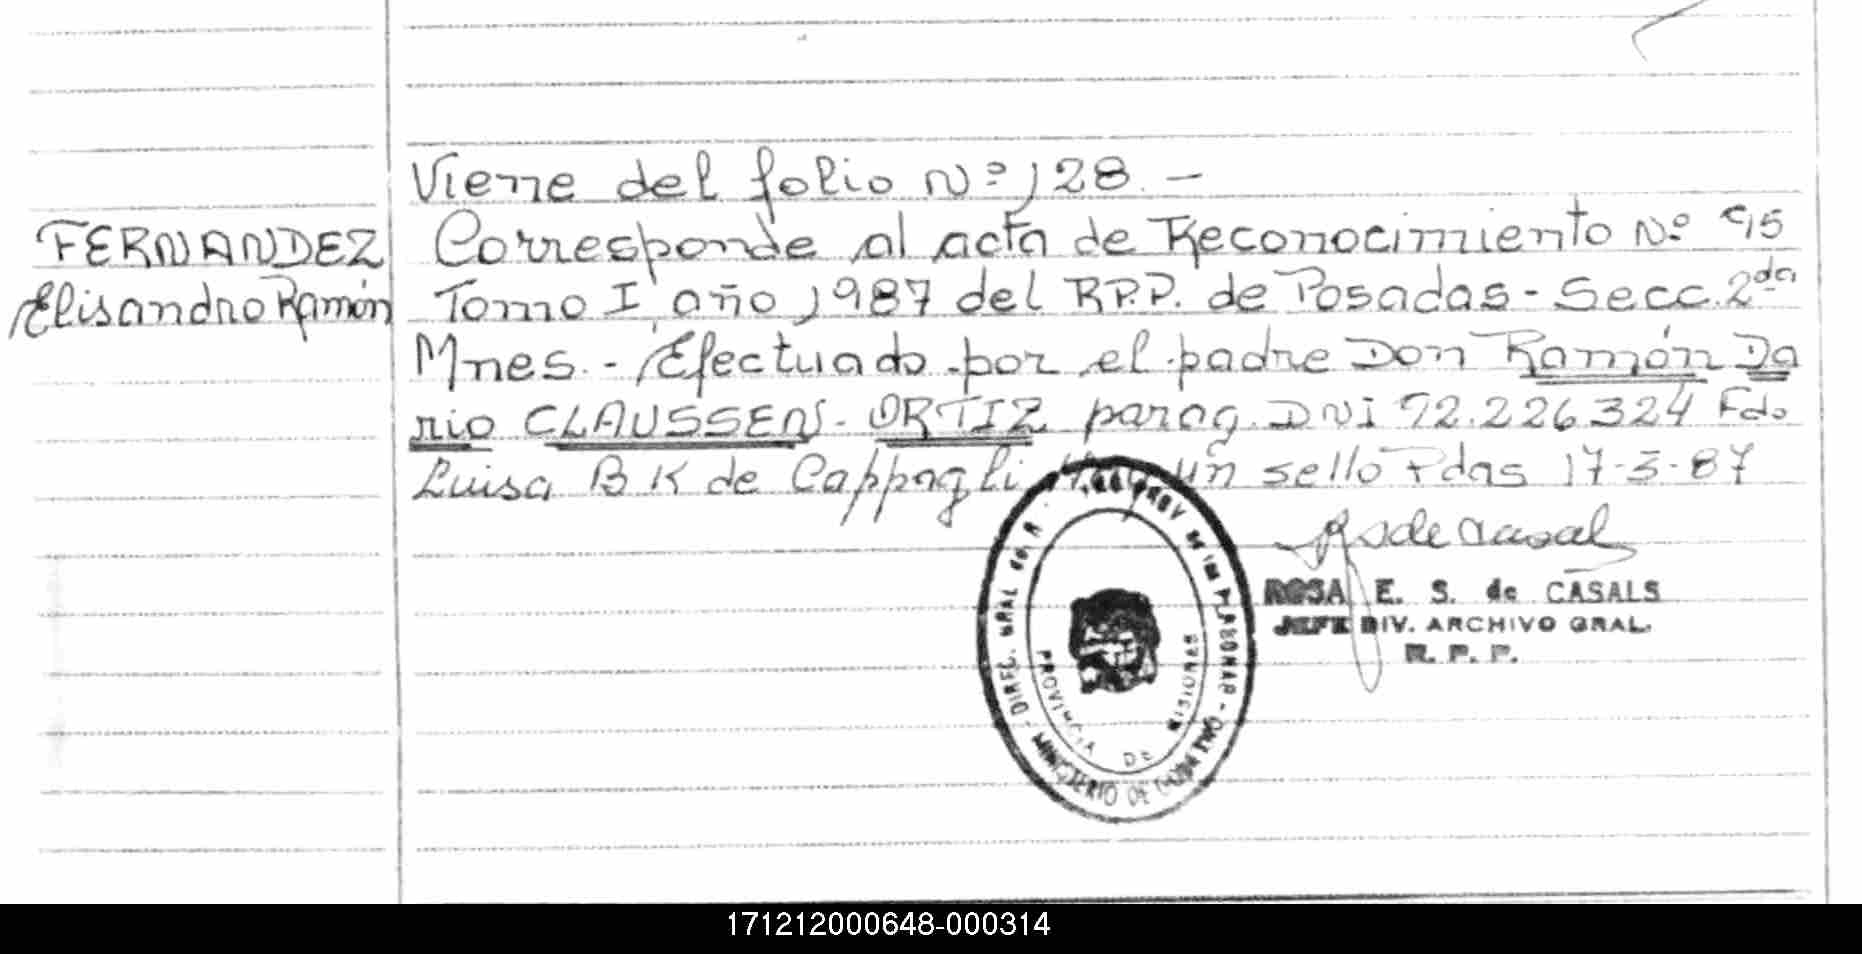 Viene del folio Nº 128. -
FERNANDEZ
Elisandro Ramón
Corresponde al acta de Reconocimiento Nº 95
Tomo I año 1987 del R.P.P. de Posadas - Secc. 2da
Mnes. - Efectuado por el padre Don Ramón Da
rio CLAUSSEN - ORTIZ parag. DNI 92.226.324 Fdo.
Luisa B K de Cappagli Hay un sello Pdas 17-3-87
ROSA E. S. de CASALS
JEFE DIV. ARCHIVO GRAL.
R. P. P.
DIREC. GRAL del R. PROV de las PERSONAS -
MINISTERIO DE GOBIERNO -
PROVINCIA DE MISIONES
171212000648-000314